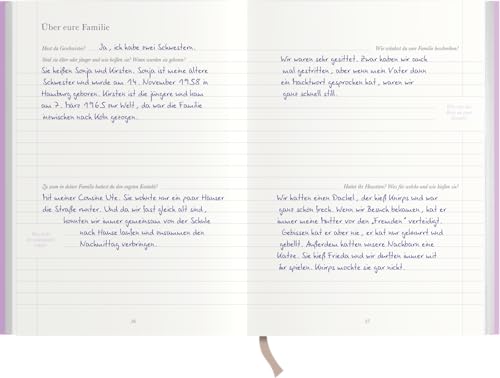 Über eure Familie
Hast du Geschwister? Ja, ich habe zwei Schwestern.
Sind sie älter oder jünger und wie heißen sie? Wann wurden sie geboren?
Sie heißen Sonja und Kirsten. Sonja ist meine ältere
Schwester und wurde am 14. November 1958 in
Hamburg geboren. Kirsten ist die jüngere und kam
am 7. März 1965 zur Welt, da war die Familie
inzwischen nach Köln gezogen.
Zu wem in deiner Familie hattest du den engsten Kontakt?
Mit meiner Cousine Ute. Sie wohnte nur ein paar Häuser
die Straße runter. Und da wir fast gleich alt sind,
konnten wir immer gemeinsam von der Schule
nach Hause laufen und zusammen den
Nachmittag verbringen.
36
Wie würdest du eure Familie beschreiben?
Wir waren sehr gesittet. Zwar haben wir auch
mal gestritten, aber wenn mein Vater dann
ein Machtwort gesprochen hat, waren wir
ganz schnell still.
Hattet ihr Haustiere? Was für welche und wie hießen sie?
Wir hatten einen Dackel, der hieß Knirps und war
ganz schön frech. Wenn wir Besuch bekamen, hat er
immer meine Mutter vor den „Fremden" verteidigt.
Gebissen hat er aber nie, er hat nur geknurrt und
gebellt. Außerdem hatten unsere Nachbarn eine
Katze. Sie hieß Frieda und wir durften immer mit
ihr spielen. Knirps mochte sie gar nicht.
37